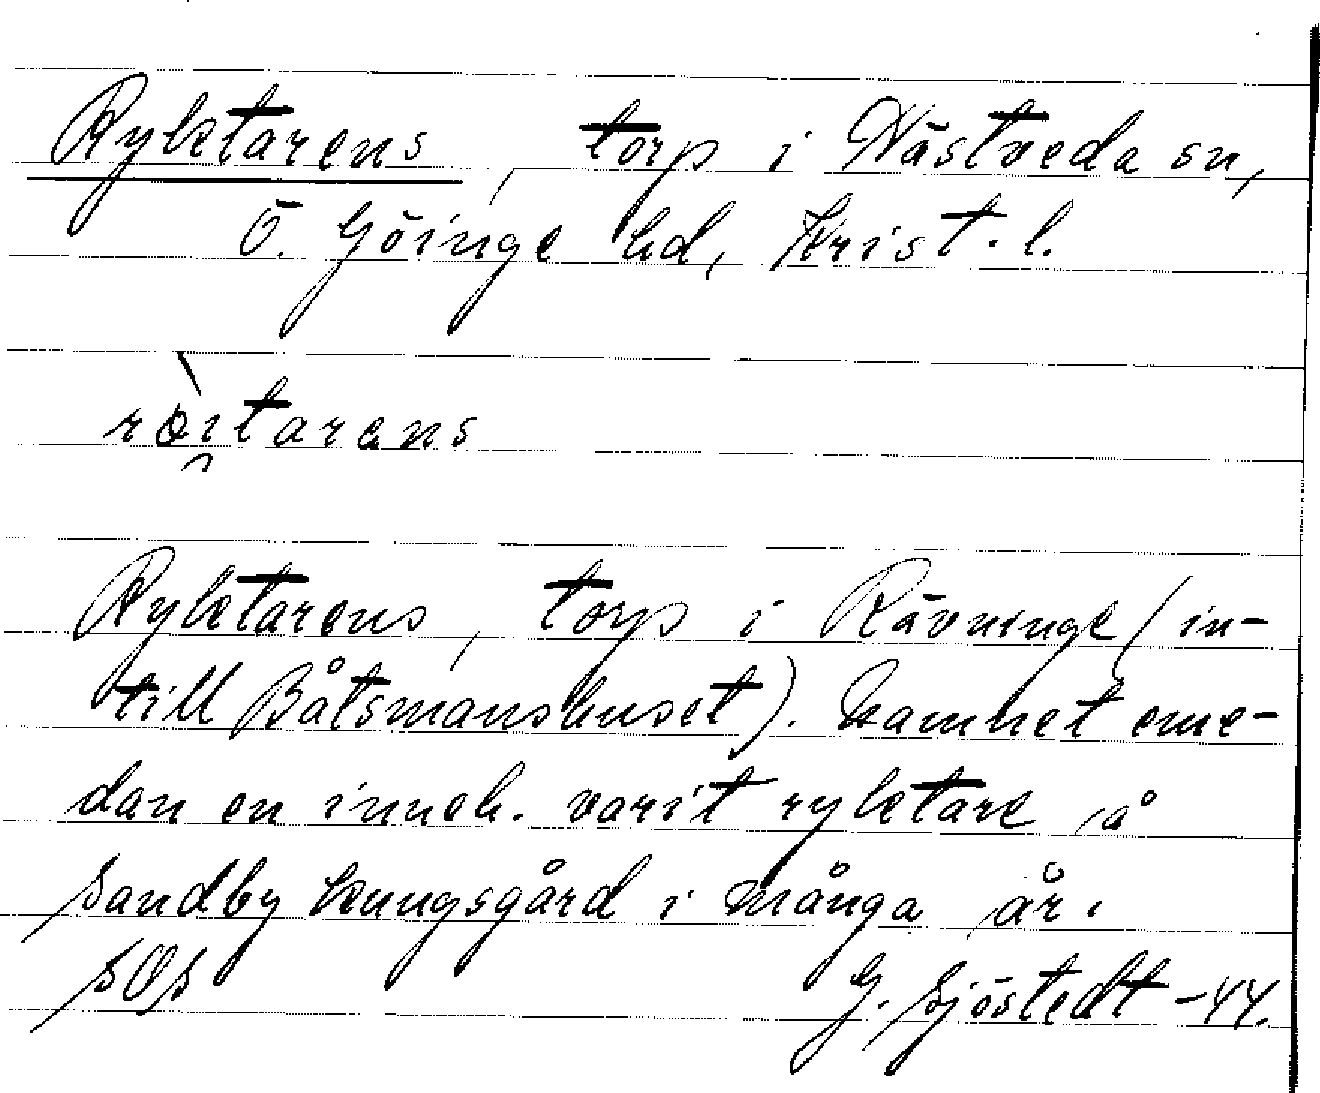 Ryktarens, torp i Nästveda sn,
Ö. Göinge hd, Krist. l.
ròi̯tarens
Ryktarens, torp i Rävninge (in-
till Båtsmanshuset). Namnet eme-
dan en inneh. varit ryktare å
Sandby kungsgård i många år.
SOS G. Sjöstedt -44.